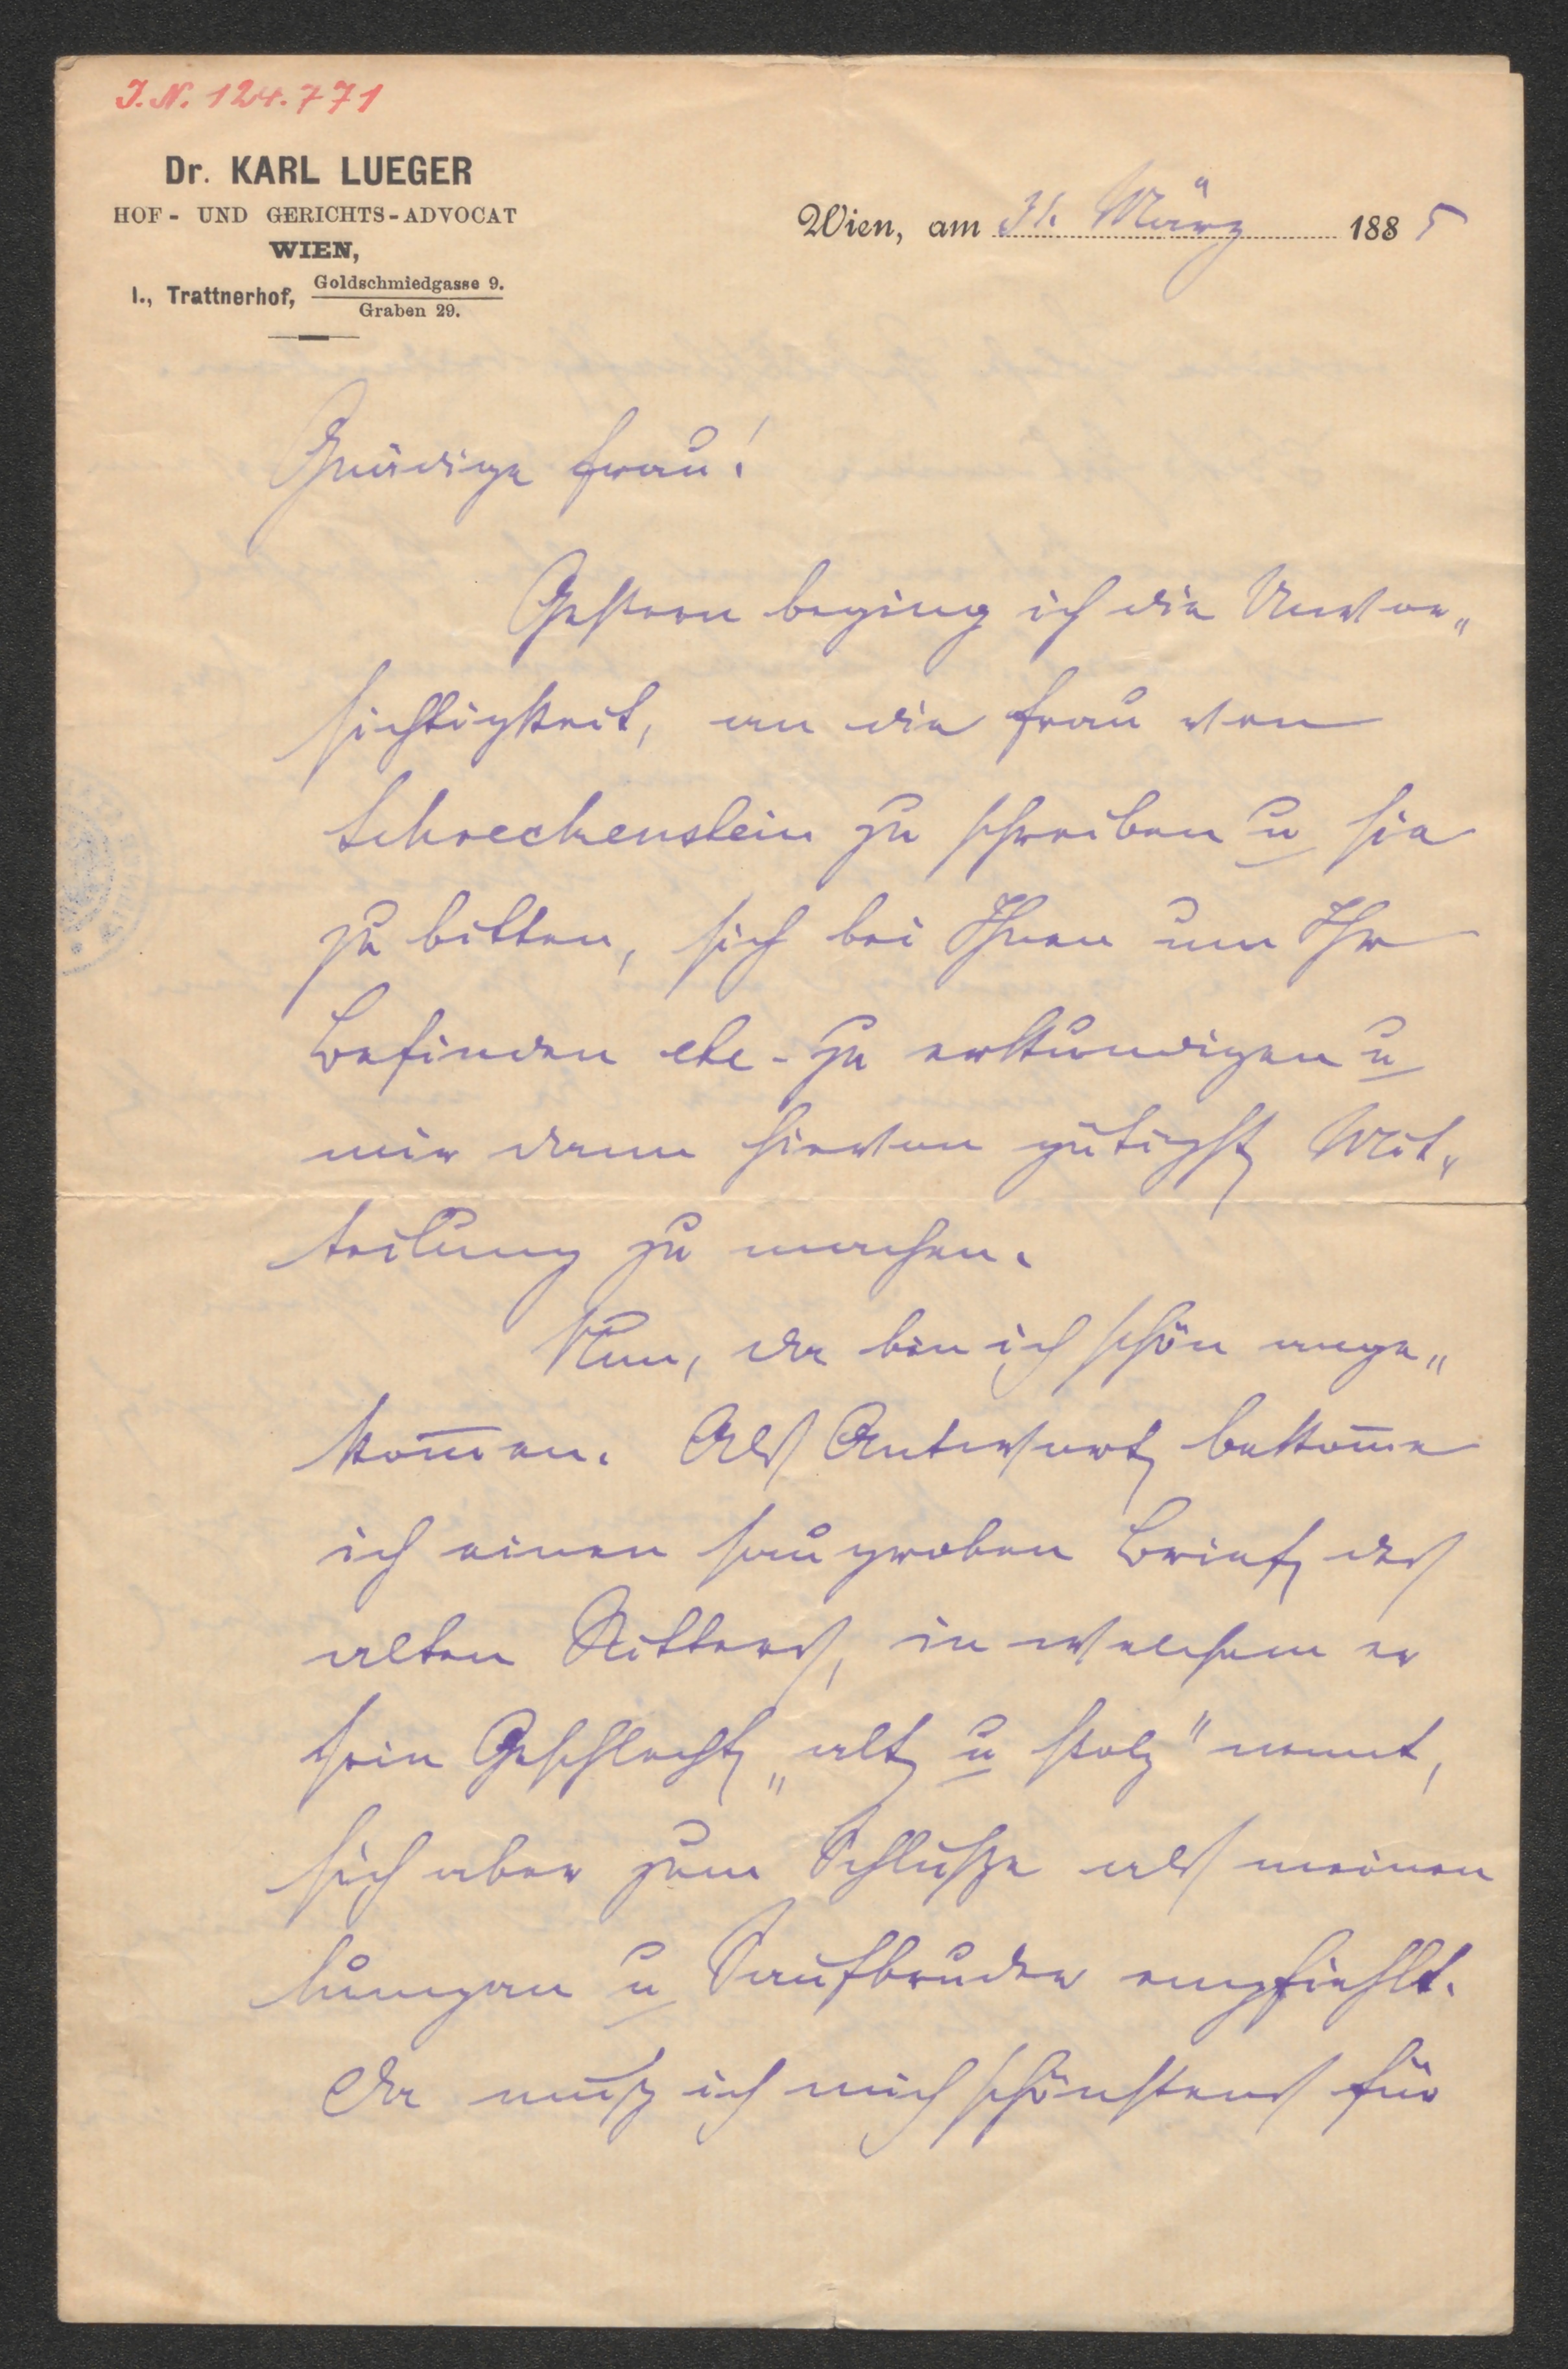 I. N. 124.771
Dr. KARL LUEGER
HOF- UND GERICHTS-ADVOCAT
WIEN,
I., Trattnerhof, Goldschmiedgasse 9.
Graben 29.
Wien, am 31. März 1885
Gnädige Frau!
Gestern beging ich die Unvor„
sichtigkeit, an die Frau von
Schreckenstein zu schreiben u sie
zu bitten, sich bei Ihnen um Ihr
Befinden etc. zu erkundigen u
mir dann hievon gütigst Mit„
teilung zu machen.
Nun, da bin ich schön ange„
kom̄en. Als Antwort bekom̄e
ich einen saugroben Brief des
alten Ritters, in welchem er
sein Geschlecht „alt u stolz" nennt,
sich aber zum Schluße als meinen
u Saufbruder empfiehlt.
Da muß ich mich schönstens für